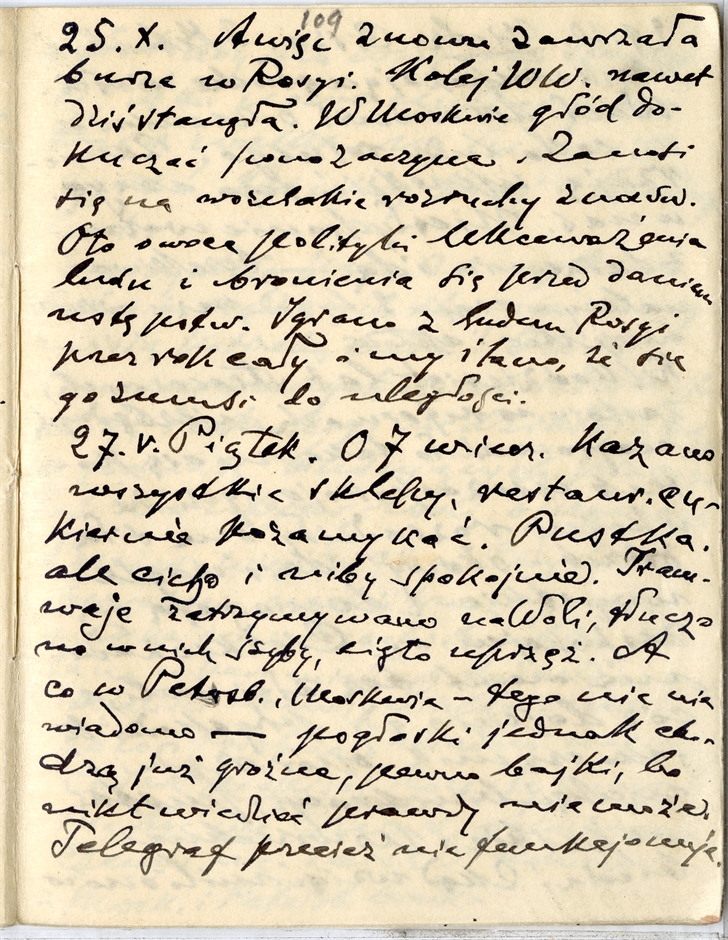 109
25. X. A więc znowu zawrzała
burza w Rosyi. Kolej WW. nawet
dziś stanęła. W Moskwie głód do-
kuczać pono zaczyna. Zanosi
się na wszelakie rozruchy znów.
Oto owoce polityki lekceważenia
ludu i bronienia się przed daniem
ustępstw. Igrano z ludem Rosyi
przez rok cały i myślano, że się
go zmusi do uległości.
27. V. Piątek. O 7 wiecz. Kazano
wszystkie sklepy, restaur. cu-
kiernie pozamykać. Pustka.
ale cicho i niby spokojnie. Tram-
waje zatrzymywano na Woli, tłuczo
no w nich szyby, cięto uprząż. A
co w Petersb., Moskwie – tego nie nie
wiadomo — pogłoski jednak cho-
dzą już groźne, pewno bajki, bo
nikt wiedzieć prawdy nie może.
Telegraf przecież nie funkcjonuje.